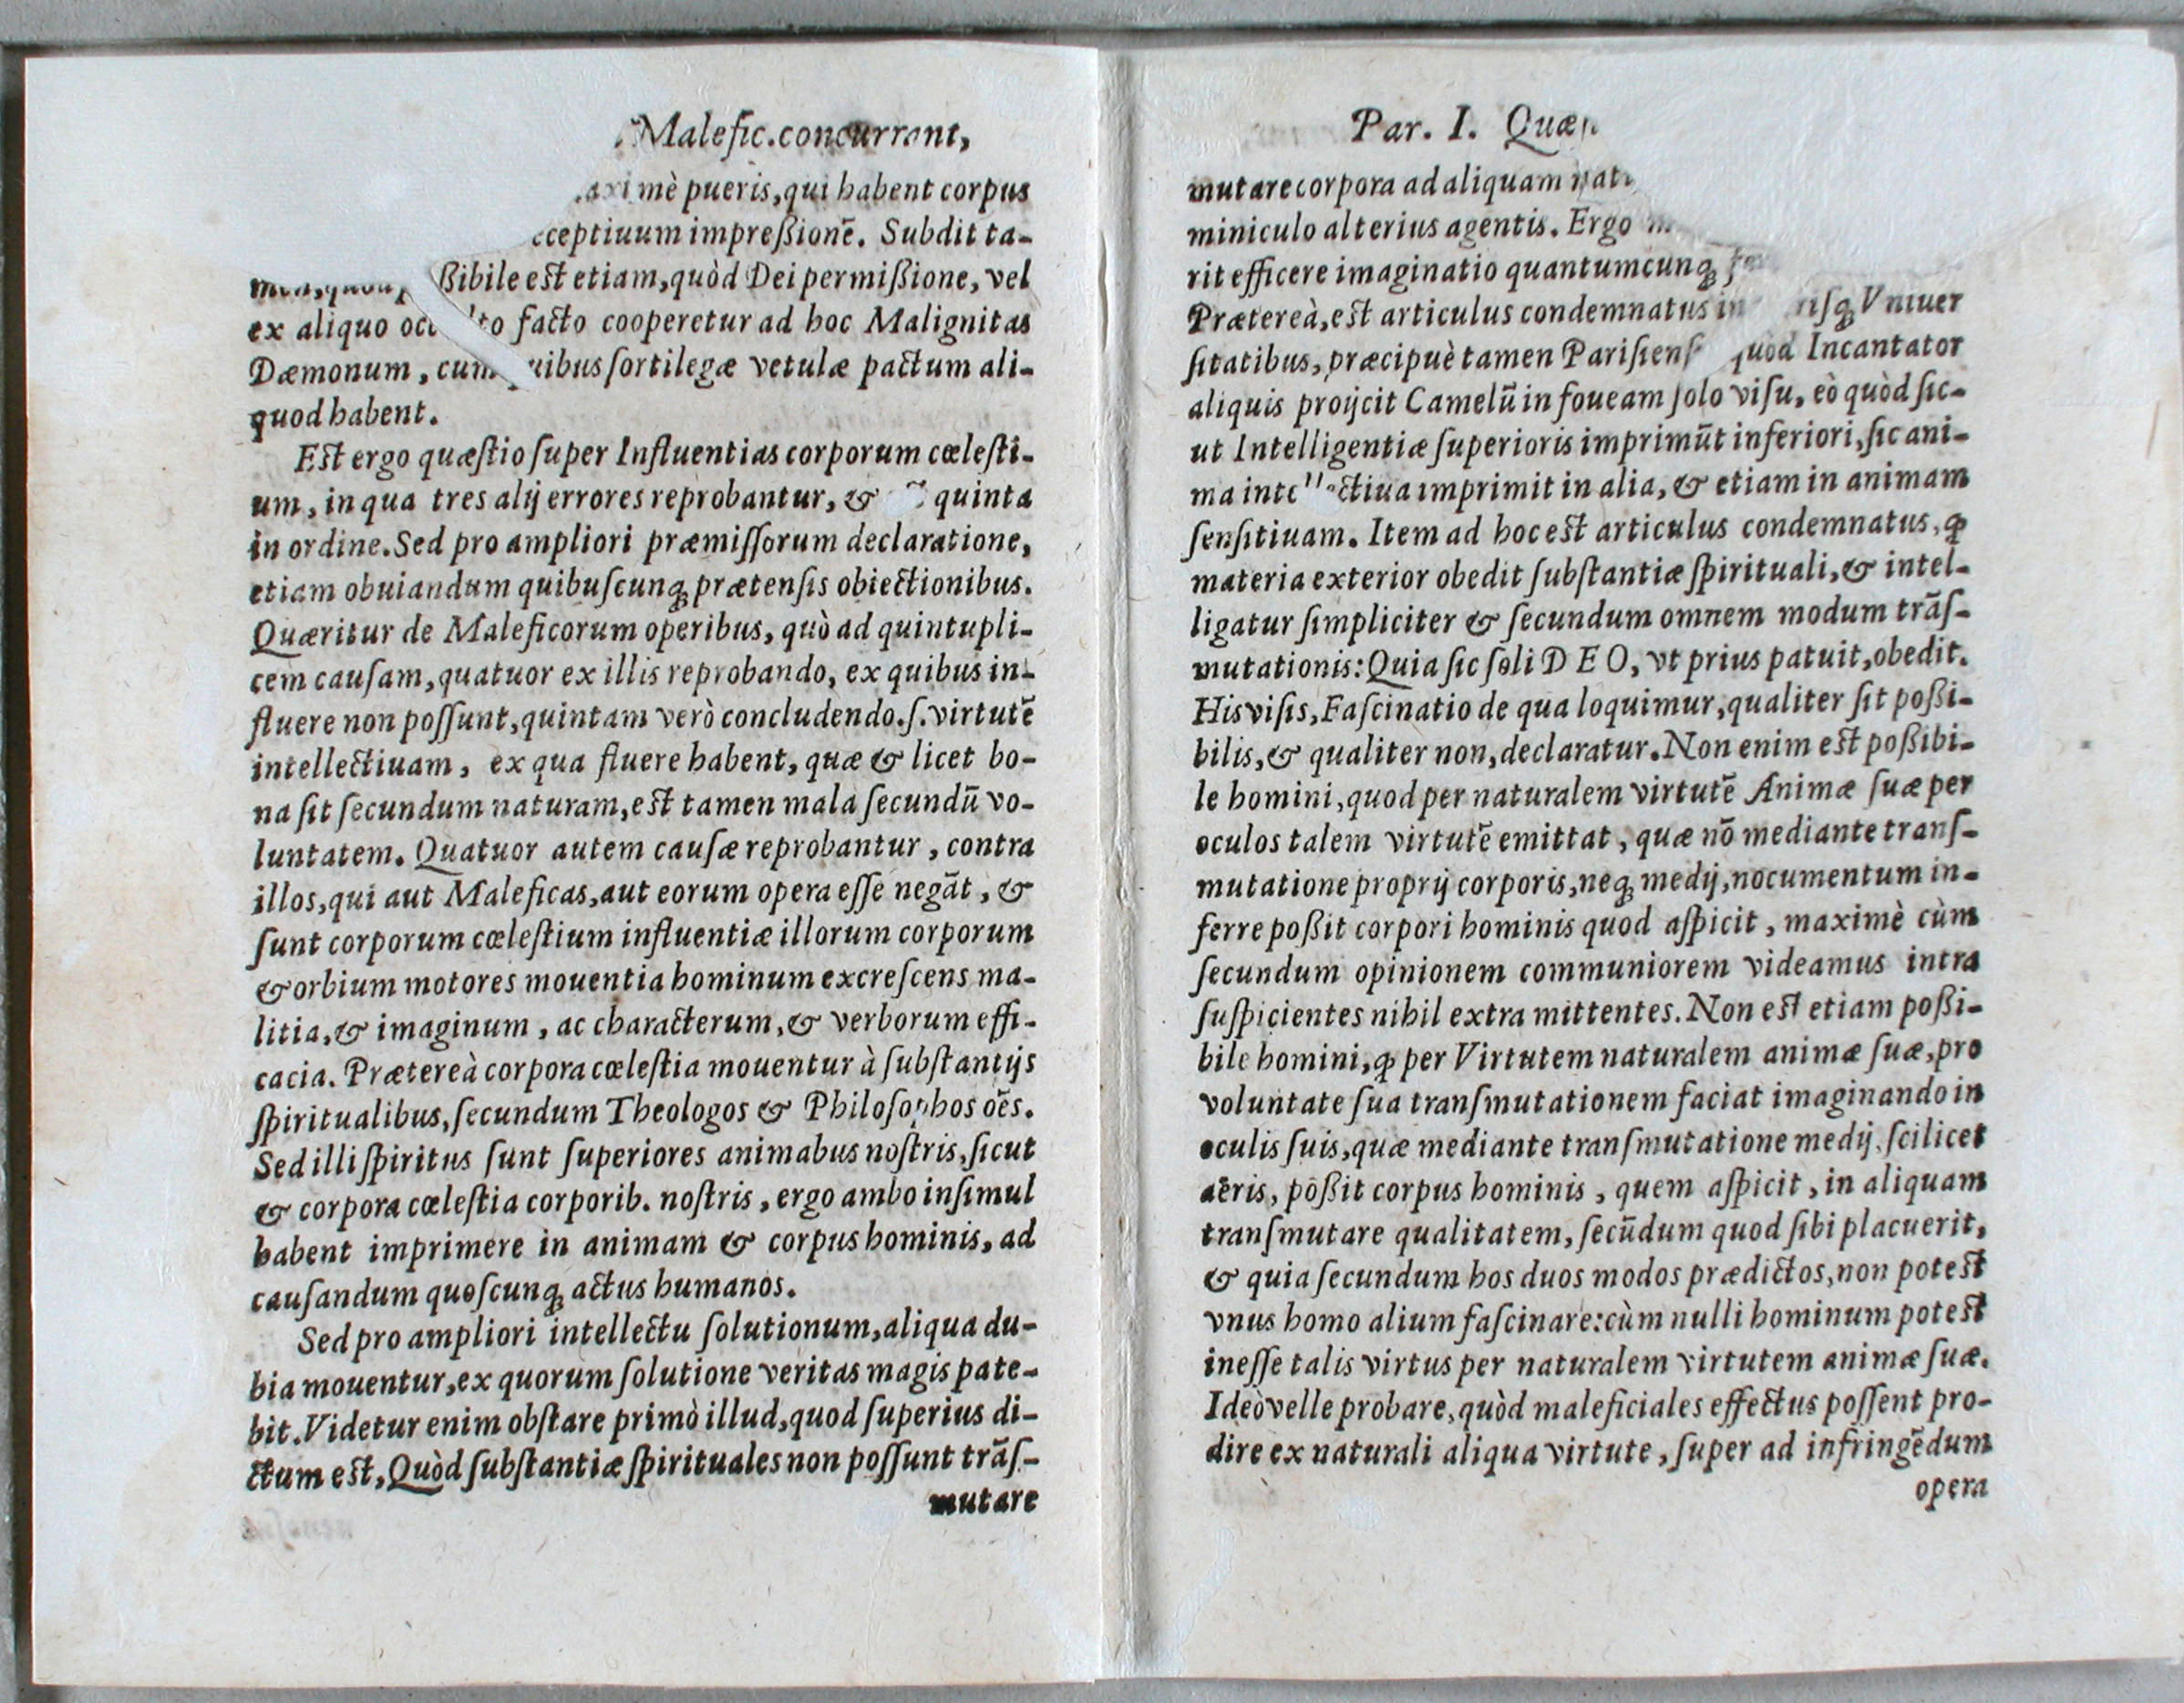 Malefic. concurrant,
mè pueris, qui habent corpus
impreßionē. Subdit ta-
est etiam, quòd Dei permißione, vel
ex aliquo facto cooperetur ad hoc Malignitas
Dæmonum, ſortilegæ vetulæ pactum ali-
quod habent.
Est ergo quæſtio ſuper Influentias corporum cœleſti-
um, in qua tres alij errores reprobantur, & quinta
in ordine. Sed pro ampliori præmiſſorum declaratione,
etiam obuiandum quibuſcunq; prætenſis obiectionibus.
Quæritur de Maleficorum operibus, quò ad quintupli-
cem cauſam, quatuor ex illis reprobando, ex quibus in-
fluere non poſſunt, quintam verò concludendo. ſ. virtutē
intellectiuam, ex qua fluere habent, quæ & licet bo-
na ſit ſecundum naturam, est tamen mala ſecundū vo-
luntatem. Quatuor autem cauſæ reprobantur, contra
illos, qui aut Maleficas, aut eorum opera eſſe negāt, &
ſunt corporum cœleſtium influentiæ illorum corporum
& orbium motores mouentia hominum excreſcens ma-
litia, & imaginum, ac characterum, & verborum effi-
cacia. Prætereà corpora cœleſtia mouentur à ſubſtantijs
ſpiritualibus, ſecundum Theologos & Philoſophos oēs.
Sed illi ſpiritus ſunt ſuperiores animabus noſtris, ſicut
& corpora cœleſtia corporib. noſtris, ergo ambo inſimul
habent imprimere in animam & corpus hominis, ad
cauſandum quoſcunq; actus humanos.
Sed pro ampliori intellectu ſolutionum, aliqua du-
bia mouentur, ex quorum ſolutione veritas magis pate-
bit. Videtur enim obſtare primò illud, quod ſuperius di-
ctum est, Quòd ſubſtantiæ ſpirituales non poſſunt trāſ-
mutare
Par. I.
mutare corpora ad aliquam
miniculo alterius agentis. Ergo
rit efficere imaginatio quantumcunq;
Prætereà, est articulus condemnatus in Vniuer
ſitatibus, præcipuè tamen quòd Incantator
aliquis proijcit Camelū in foueam ſolo viſu, eò quòd ſic-
ut Intelligentiæ ſuperioris imprimūt inferiori, ſic ani-
ma imprimit in alia, & etiam in animam
ſenſitiuam. Item ad hoc est articulus condemnatus, ꝙ
materia exterior obedit ſubſtantiæ ſpirituali, & intel-
ligatur ſimpliciter & ſecundum omnem modum trāſ-
mutationis: Quia ſic ſoli DEO, vt prius patuit, obedit.
His viſis, Faſcinatio de qua loquimur, qualiter ſit poßi-
bilis, & qualiter non, declaratur. Non enim est poßibi-
le homini, quod per naturalem virtutē Animæ ſuæ per
oculos talem virtutē emittat, quæ nō mediante tranſ-
mutatione proprij corporis, neq; medij, nocumentum in-
ferre poßit corpori hominis quod aſpicit, maximè cùm
ſecundum opinionem communiorem videamus intra
ſuſpicientes nihil extra mittentes. Non est etiam poßi-
bile homini, ꝙ per Virtutem naturalem animæ ſuæ, pro
voluntate ſua tranſmutationem faciat imaginando in
oculis ſuis, quæ mediante tranſmutatione medij, ſcilicet
aëris, poßit corpus hominis, quem aſpicit, in aliquam
tranſmutare qualitatem, ſecūdum quod ſibi placuerit,
& quia ſecundum hos duos modos prædictos, non potest
vnus homo alium faſcinare: cùm nulli hominum potest
ineſſe talis virtus per naturalem virtutem animæ ſuæ.
Ideò velle probare, quòd maleficiales effectus poſſent pro-
dire ex naturali aliqua virtute, ſuper ad infringēdum
opera